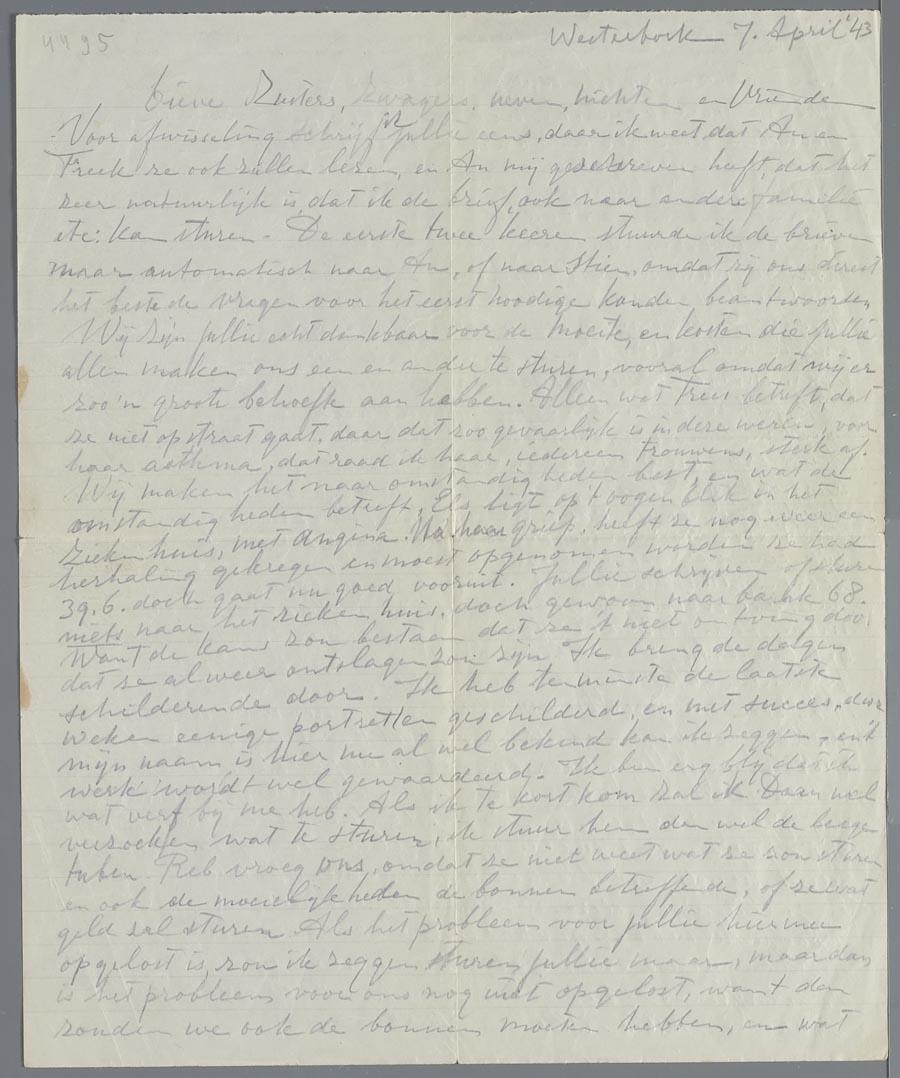 4495
Westerbork 7. April '43
Lieve Zusters, Zwagers, neven, nichten en Vrienden
Voor afwisseling schrijf ik jullie eens, daar ik weet, dat An en
Freek ze ook zullen lezen, en An mij geschreven heeft, dat het
zeer natuurlijk is, dat ik de brief, ook naar andere familie
etc: kan sturen. De eerste twee keeren stuurde ik de brieven
maar automatisch naar An, of naar Stien, omdat zij ons direct
het beste de vragen voor het eerst noodige konden beantwoorden
Wij zijn jullie echt dankbaar voor de moeite, en kosten die jullie
allen maken ons een en ander te sturen, vooral omdat wij er
zoo'n groote behoefte aan hebben. Alleen wat Trees betreft, dat
ze niet op straat gaat, daar dat zoo gevaarlijk is in deze weken, voor
haar asthma, dat raad ik haar, iedereen trouwens, sterk af.
Wij maken het naar omstandigheden best, en wat de
omstandigheden betreft, Els ligt op 't oogenblik in het
ziekenhuis, met angina. Na haar griep, heeft ze nog weer een
herhaling gekregen en moest opgenomen worden ze had
39.6. doch gaat nu goed vooruit. Jullie schrijven of sturen
niets naar het ziekenhuis, doch gewoon naar barak 68.
Want de kans zou bestaan dat ze 't niet ontving door
dat ze al weer ontslagen zou zijn. Ik breng de dagen
schilderende door. Ik heb tenminste de laatste
weken eenige portretten geschilderd, en met succes, door
mijn naam is hier nu al wel bekend kan ik zeggen, en 't
werk wordt wel gewaardeerd. Ik ben erg blij dat ik
wat verf bij me heb. Als ik te kort kom zal ik Daan wel
verzoeken wat te sturen, ik stuur hem dan wel de leege
tuben. Reb vroeg ons, omdat ze niet weet wat ze zou sturen
en ook de moeielijkheden de bonnen betreffende, of ze wat
geld zal sturen. Als het probleem voor jullie hiermee
opgelost is, zou ik zeggen sturen jullie maar, maar dan
is het probleem voor ons nog niet opgelost, want dan
zouden we ook de bonnen moeten hebben, en wat